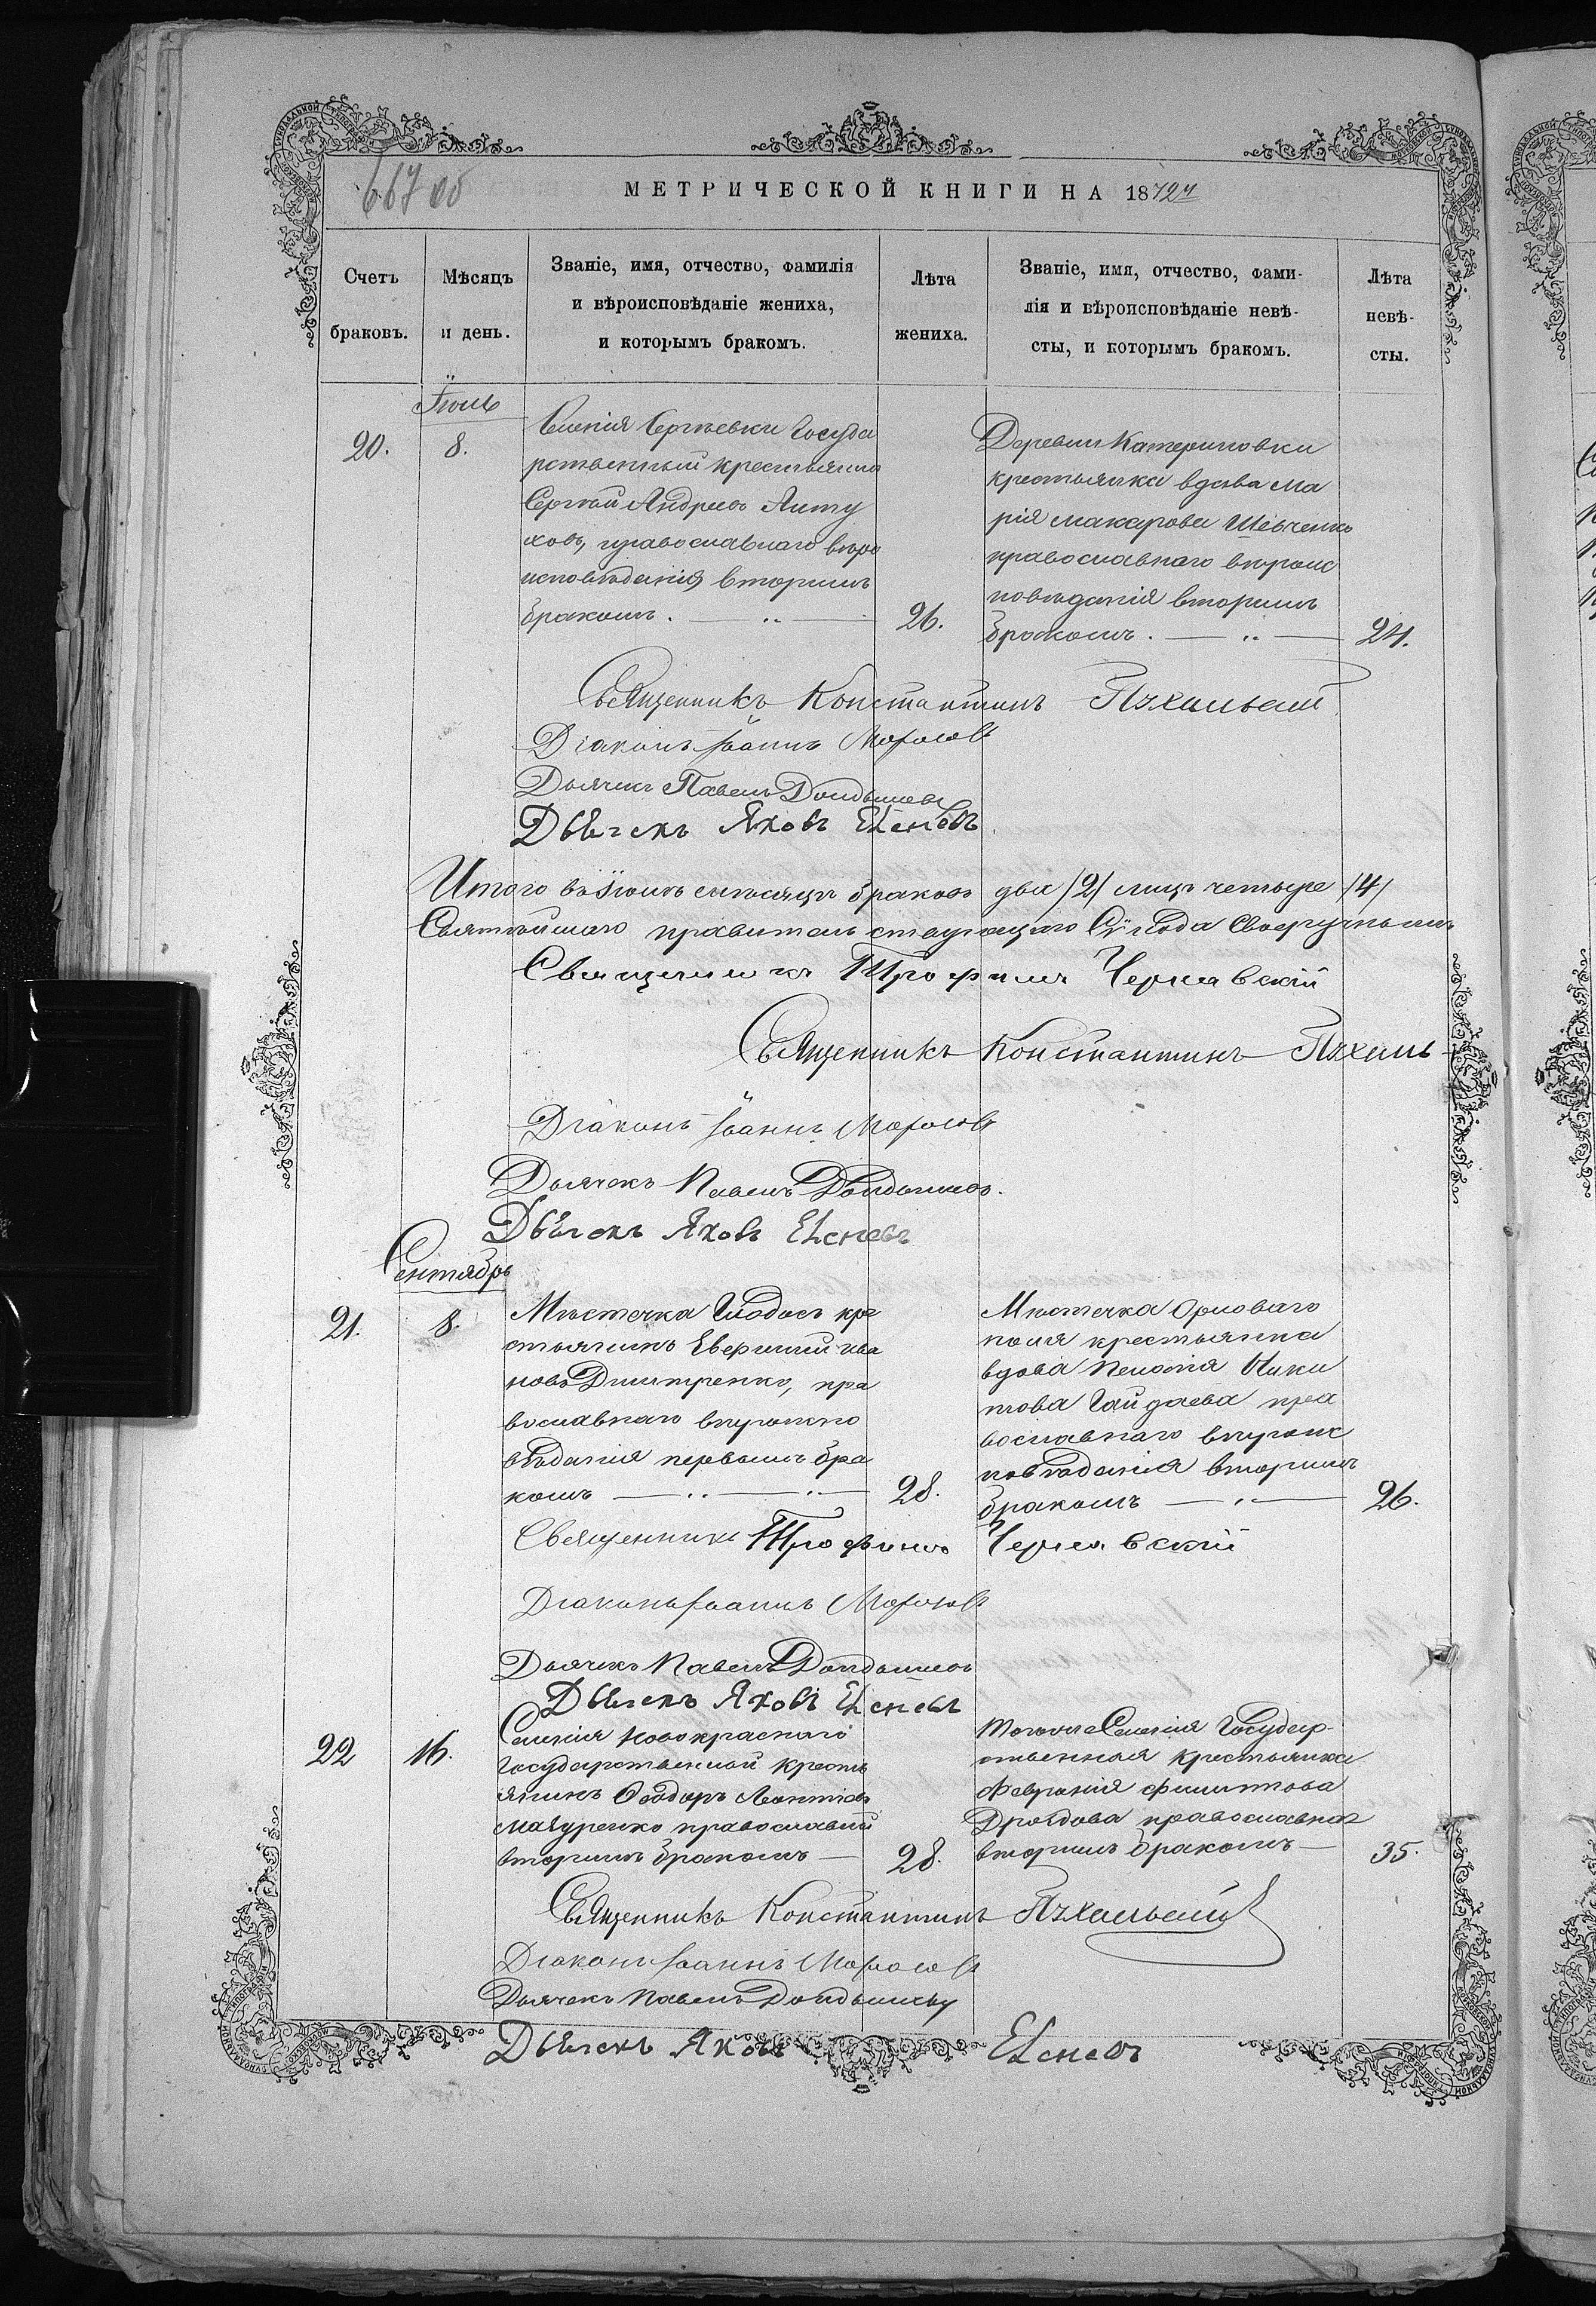 667 об
МЕТРИЧЕСКОЙ КНИГИ НА 1872 г
Счетъ браковъ.
Мѣсяцъ и день.
Званіе, имя, отчество, фамилія
и вѣроисповѣданіе жениха,
и которымъ бракомъ.
Лѣта жениха.
Званіе, имя, отчество, фами-
лія и вѣроисповѣданіе невѣ-
сты, и которымъ бракомъ.
Лѣта невѣ-
сты.
Іюль
20.
8.
Селенія Сергѣевки Госуда
рственный крестьянинъ
Сергѣй Андреевъ Алту
ховъ, православнаго вѣро
исповѣданія вторымъ
бракомъ.
26.
Деревни Катериновки
крестьянка вдова Ма
рія Макарова Шевченко
православнаго вѣроис
повѣданія вторымъ
бракомъ.
24.
Священникъ Константинъ
Діаконъ Іоаннъ Морозовъ
Дьячекъ Павелъ
Дьячекъ Яковъ
Итого въ Іюлѣ мѣсяцѣ браковъ два /2/ лицъ четыре /4/
Святѣйшаго правительствующаго Сѵнода
Священникъ Трофимъ Чернявскій
Священникъ Константинъ
Діаконъ Іоаннъ Морозовъ
Дьячекъ Павелъ
Дьячекъ Яковъ
Сентябрь
21.
8.
Мѣстечка Глодосъ кре
стьянинъ Еверкний Ива
новъ Дмитренко, пра
вославнаго вѣроиспо
вѣданія первымъ бра
комъ
28.
Мѣстечка Орловаго
поля крестьянка
вдова Пелагія Ники
това Гайдаева пра
вославнаго вѣроис
повѣданія вторымъ
бракомъ
26.
Священникъ Трофимъ Чернявскій
Діаконъ Іоаннъ Морозовъ
Дьячекъ Павелъ
Дьячекъ Яковъ
22
16.
Селенія Новокраснаго
Государственный кресть
янинъ Ѳеодоръ Леонтіевъ
Мазуренко православный
вторымъ бракомъ
28.
Тогоже Селенія Государ-
ственная крестьянка
Февронія Филиппова
Дроздова православная
вторымъ бракомъ
35.
Священникъ Константинъ
Діаконъ Іоаннъ Морозовъ
Дьячекъ Павелъ
Дьячекъ Яковъ